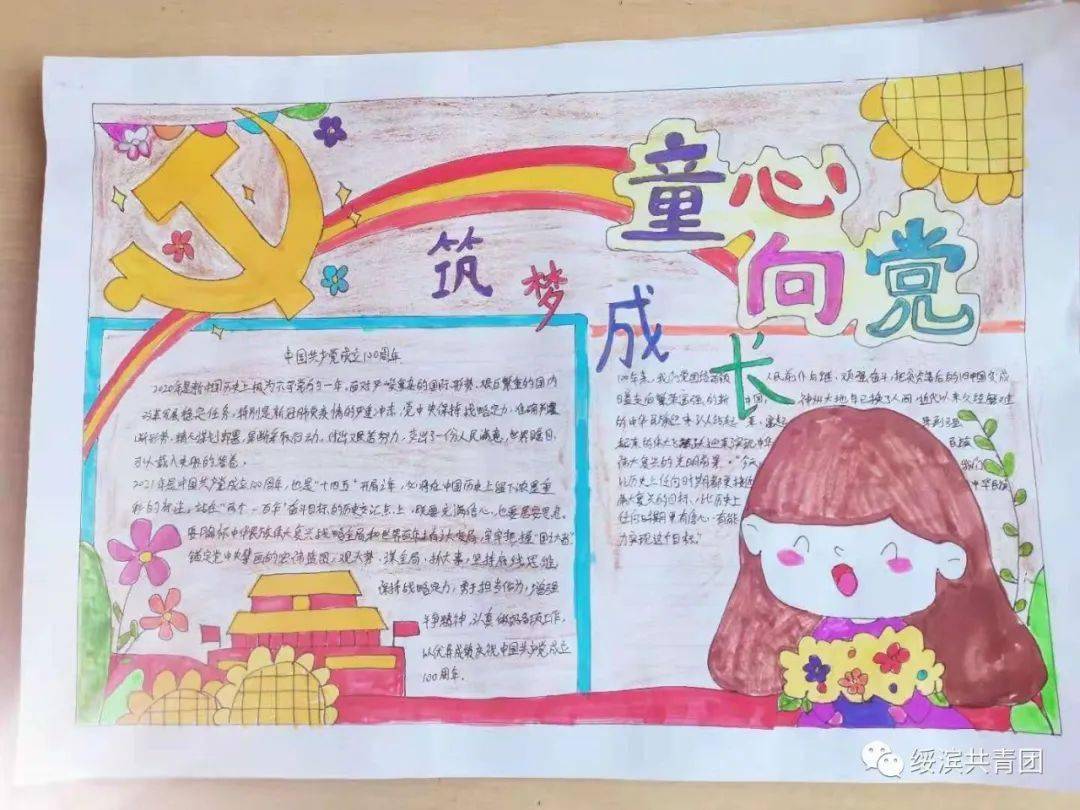 童心向党
筑梦成长
中国共产党成立100周年
2020年是新中国历史上极为不平常的一年,面对严峻复杂的国际形势、艰巨繁重的国内
改革发展稳定任务,特别是新冠肺炎疫情的严重冲击,党中央保持战略定力,准确判断
形势,精心谋划部署,果断采取行动,付出艰苦努力,交出了一份人民满意,世界瞩目,
可以载入史册的答卷。
2021年是中国共产党成立100周年,也是"十四五"开局之年,必将在中国历史上留下浓墨重
彩的标注。站在"两个一百年"奋斗目标的历史交汇点上,既要充满信心,也要居安思危。
要胸怀中华民族伟大复兴战略全局和世界百年未有之大变局,牢牢把握"国之大者"
锚定党中央擘画的宏伟蓝图,观大势、谋全局、抓大事,坚持底线思维
保持战略定力,勇于担当作为,增强
斗争精神,认真做好各项工作,
以优异成绩庆祝中国共产党成立
100周年。
100年来,我们党团结带领 人民
艰强奋斗,把贫穷落后的旧中国变成
日益走向繁荣富强的新 中国,神州大地
的中华民族迎来了从站起来,富起
起来的伟大飞跃
伟大复兴的光明前景。"今天
比历史上任何时期都更接近
伟大复兴的目标,比历史上
任何时期更有信心、有能
力实现这个目标。"
绥滨共青团